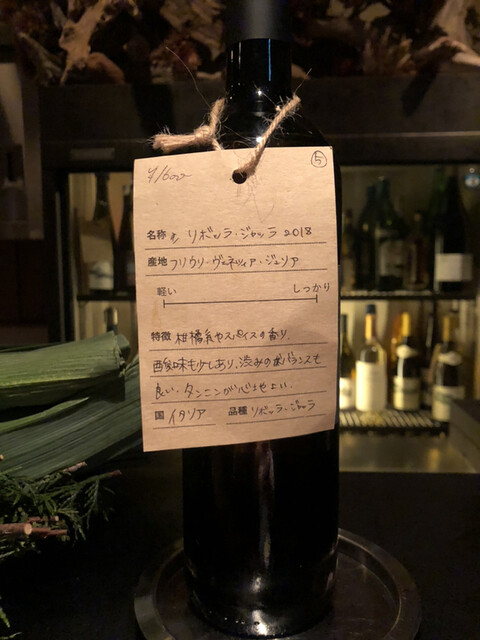 ⑤
¥1600-
名称 リボッラ・ジャッラ 2018
産地 フリウリ・ヴェネツィア・ジュリア
軽い しっかり
特徴 柑橘系やスパイスの香り、
酸味も少しあり、渋みのバランスも
良い、タンニンが心地よい。
国 イタリア 品種 リボッラ・ジャッラ